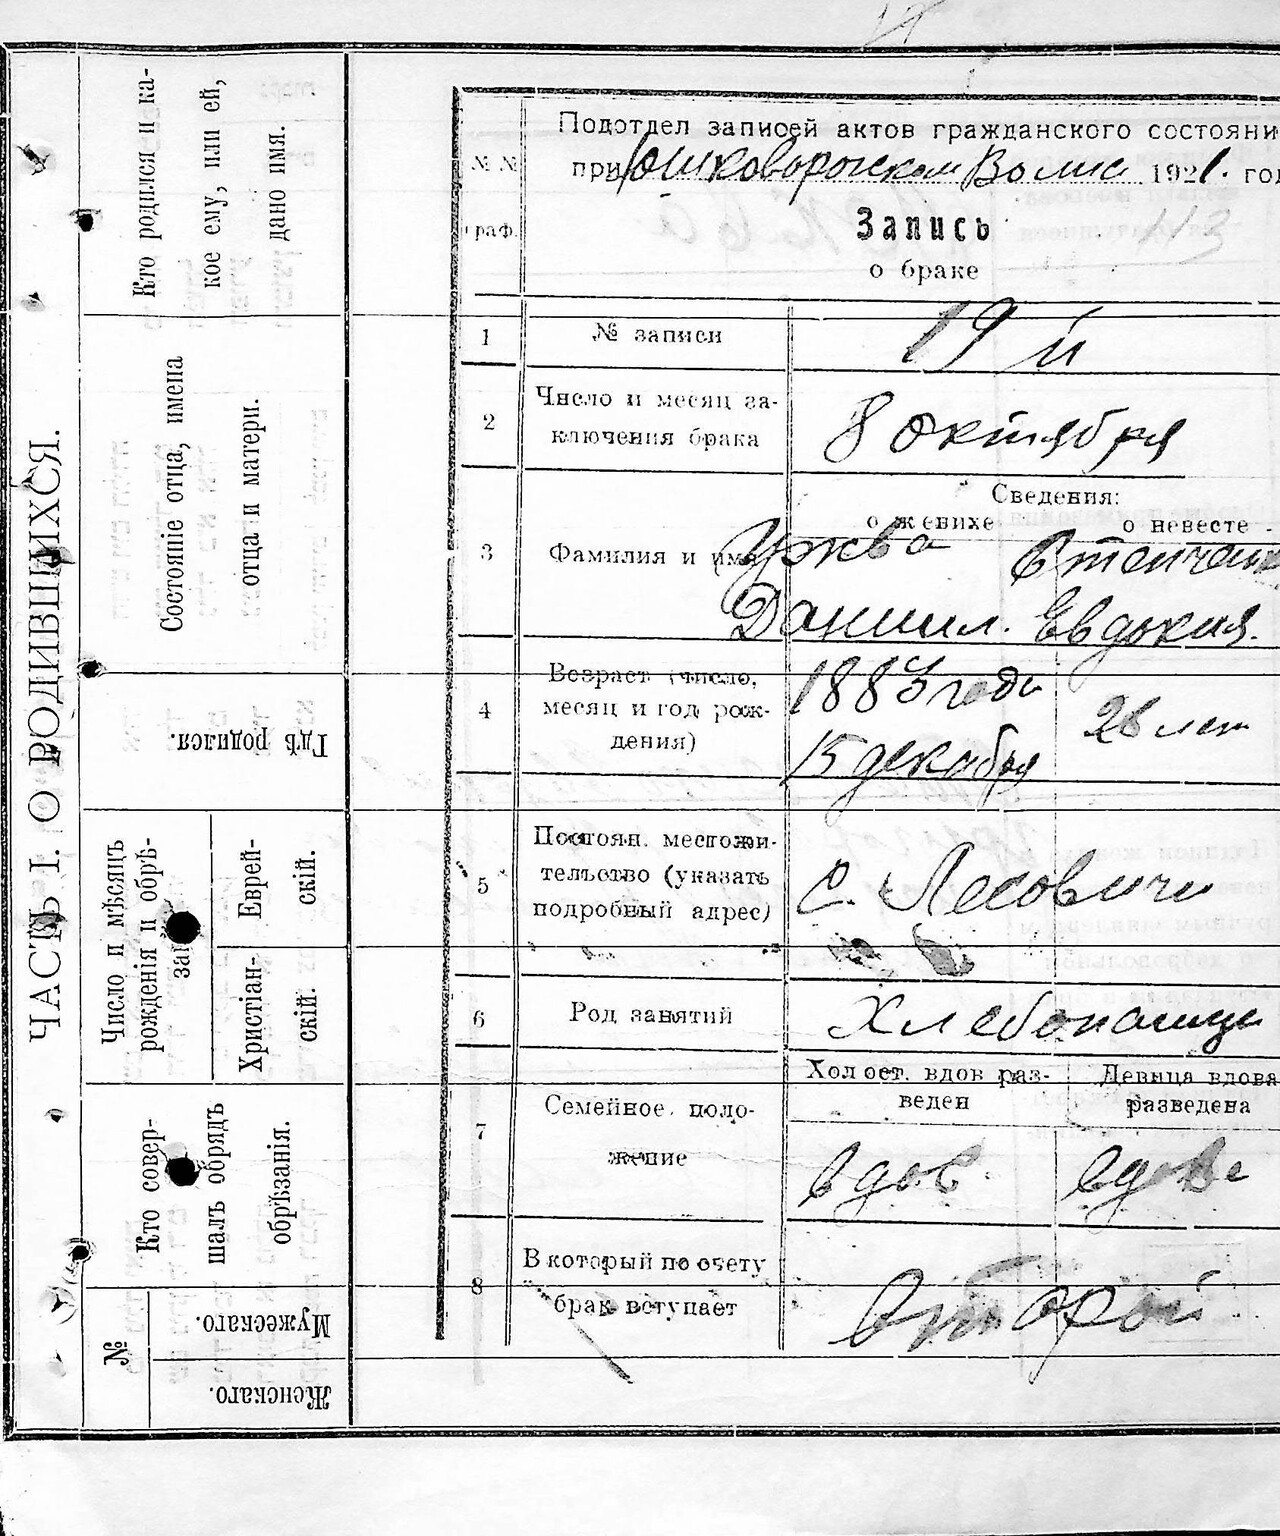 ЧАСТЬ I. О РОДИВШИХСЯ.
Кто родился и ка-
кое ему, или ей,
дано имя.
Состояніе отца, имена
отца и матери.
Гдѣ родился.
Число и мѣсяцъ
рожденія и обрѣ-
Еврей-
скій.
Христіан-
скій.
Кто совер-
шалъ обрядъ
обрѣзанія.
№
Мужескаго.
Женскаго.
Подотдел записей актов гражданского состояни
№ №
при 1921. год
граф.
Запись
113
о браке
1
№ записи
19 й
2
Число и месяц за-
ключения брака
8 октября
Сведения:
о женихе
о невесте
3
Фамилия и имя
Ужва
Даниил. Евдокия.
4
Возраст (число,
месяц и год рож-
дения)
1883 года
15 декабря
26 лет
5
Постоян. местожи-
тельство (указать
подробный адрес)
с. Лесовичи
6
Род занятий
Хлебопашци
7
Семейное поло-
жение
Холост. вдов раз-
веден
Девица вдова
разведена
вдов.
вдова
8
В который по счету
брак вступает
Второй